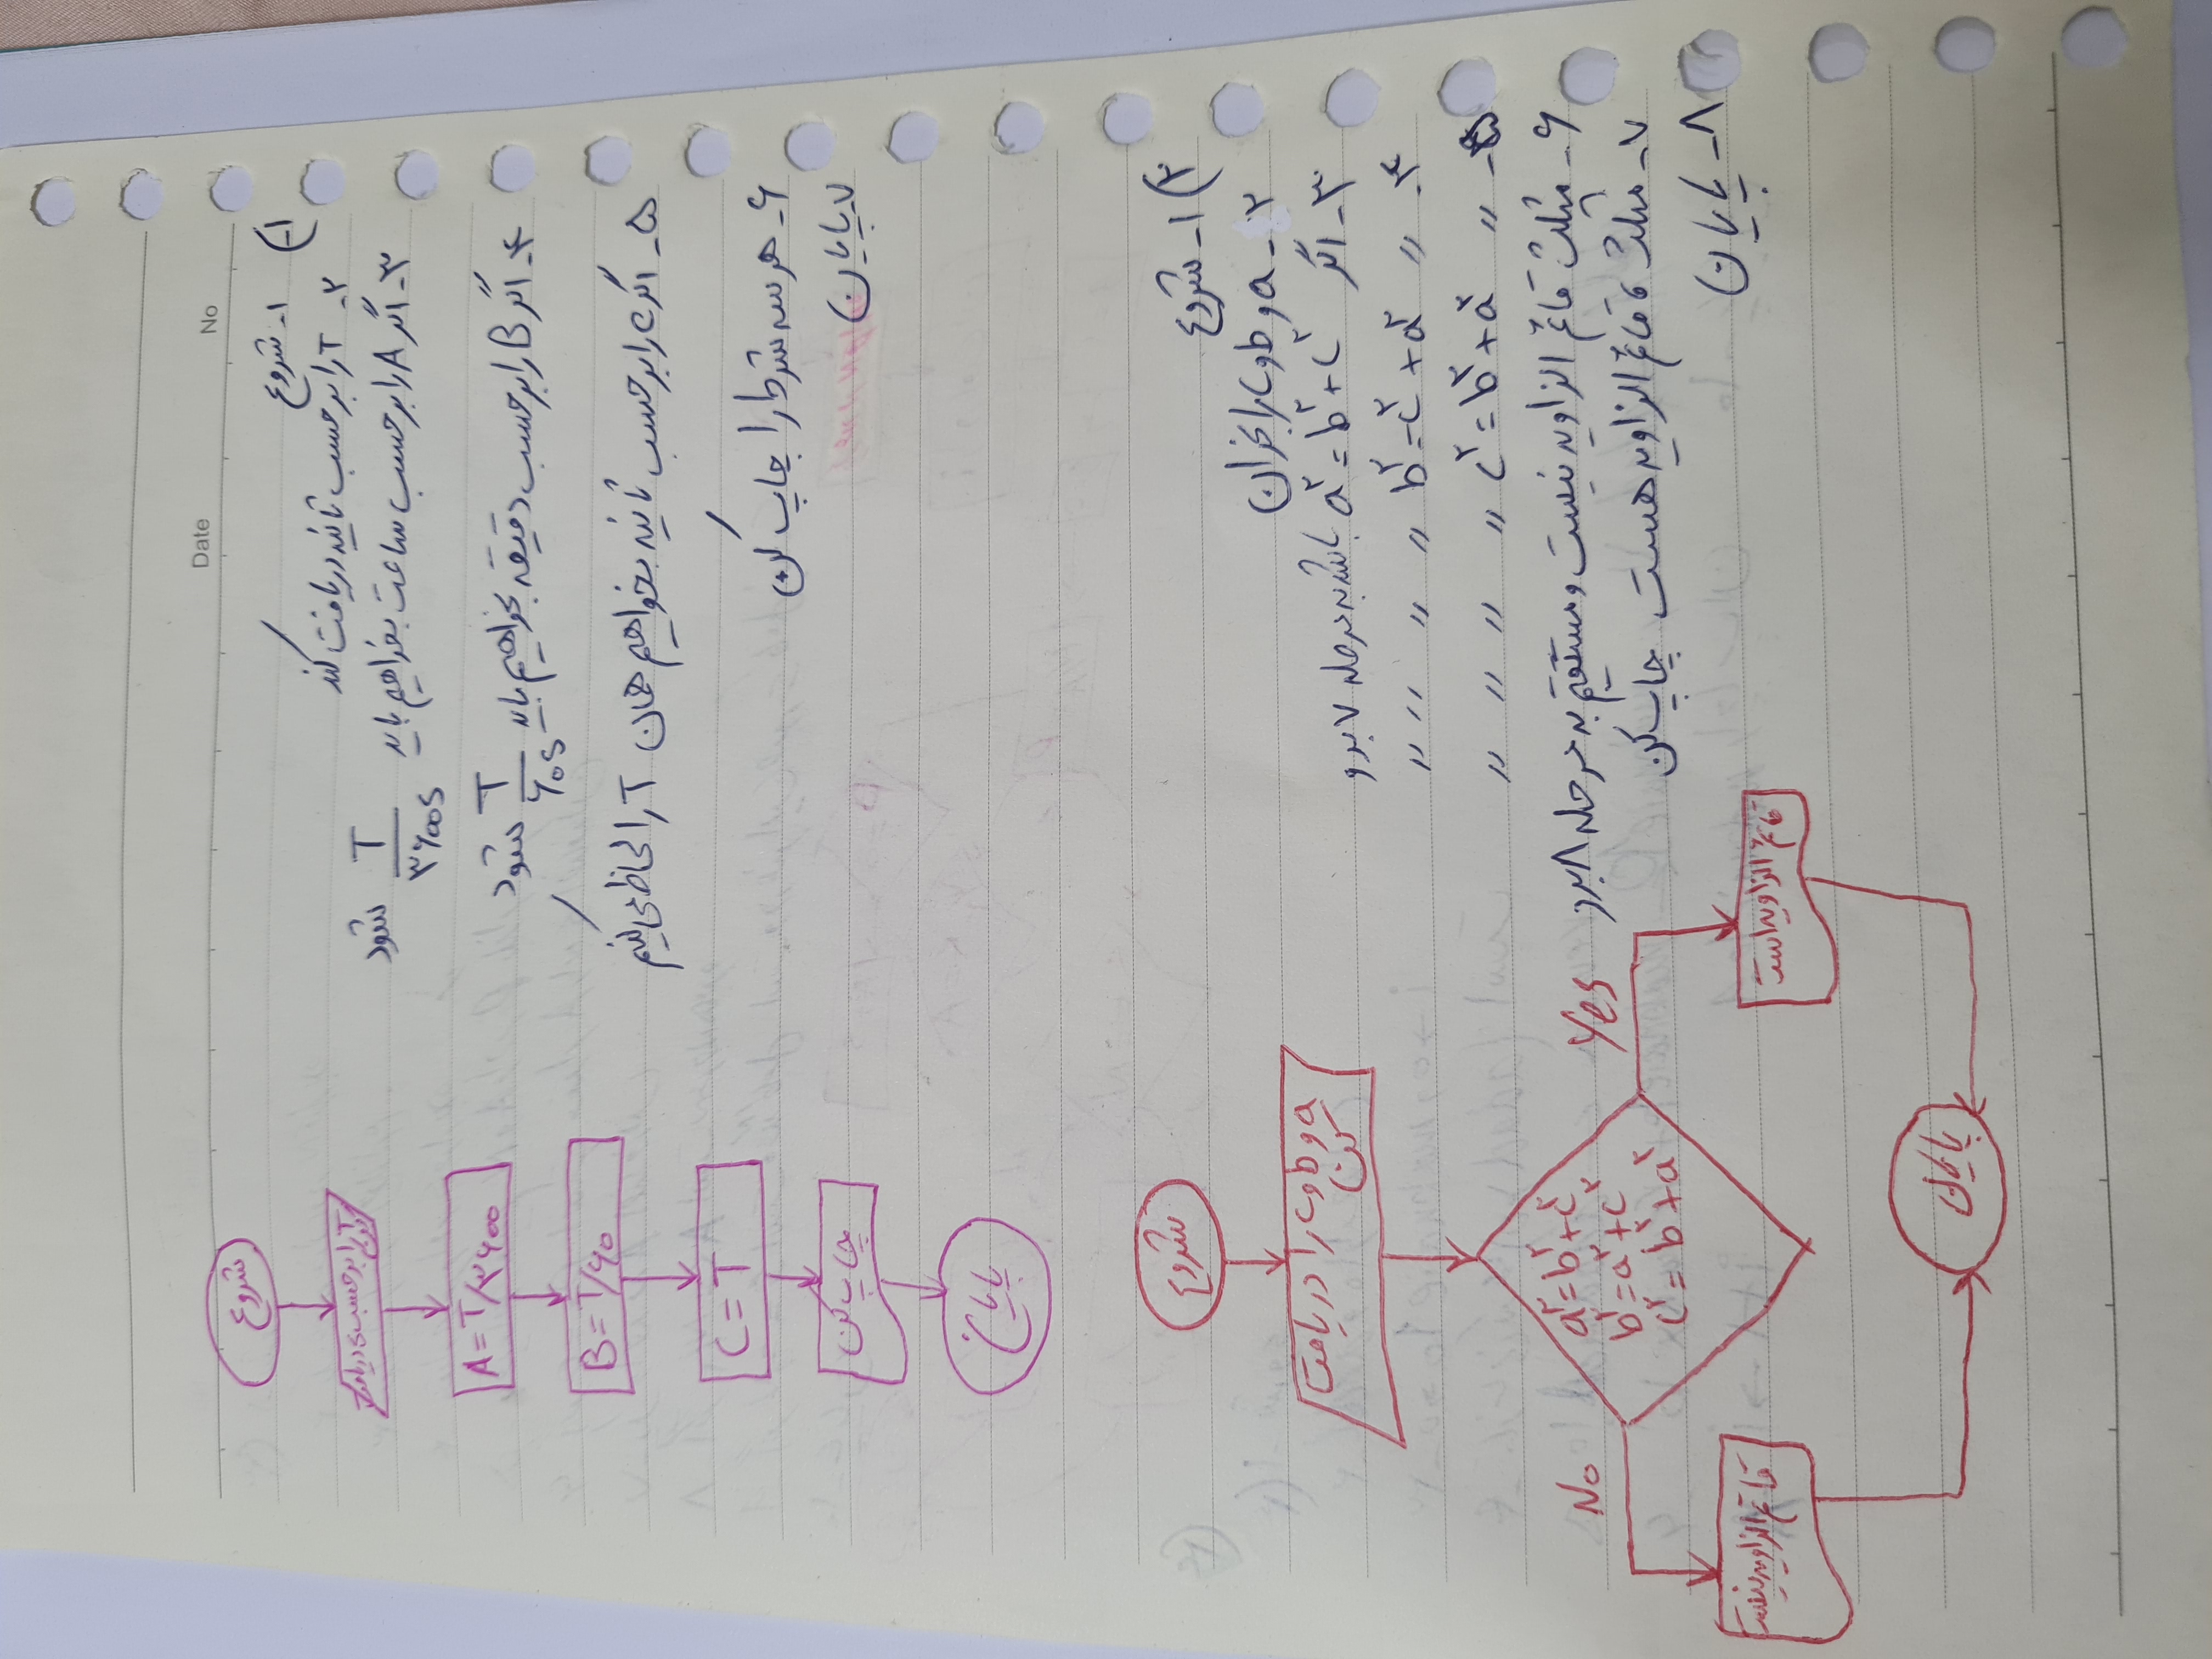 Date No
۱) ۱- شروع
۲- T را برحسب ثانیه دریافت کند
۳- اگر A را برحسب ساعت بخواهیم باید T/۳۶۰۰s شود
۴- اگر B را برحسب دقیقه بخواهیم باید T/۶۰s شود
۵- اگر c را برحسب ثانیه بخواهیم همان T را لحاظ می کنیم
۶- هر سه شرط را چاپ کن
۷- پایان
شروع
T را برحسب s دریافت
A = T/۳۶۰۰
B = T/۶۰
C = T
چاپ کن
پایان
۲) ۱- شروع
۲- a و b و c را بخوان
۳- اگر a² = b² + c² باشد به مرحله ۷ برو
۴- " b² = c² + a² " " " "
۵- " c² = b² + a² " " " "
۶- مثلث قائم الزاویه نیست و مستقیم به مرحله ۸ برو
۷- مثلث قائم الزاویه هست چاپ کن
۸- پایان
شروع
a و b و c را دریافت
کن
a² = b² + c²
b² = a² + c²
c² = b² + a²
No
Yes
قائم الزاویه نیست
قائم الزاویه است
پایان